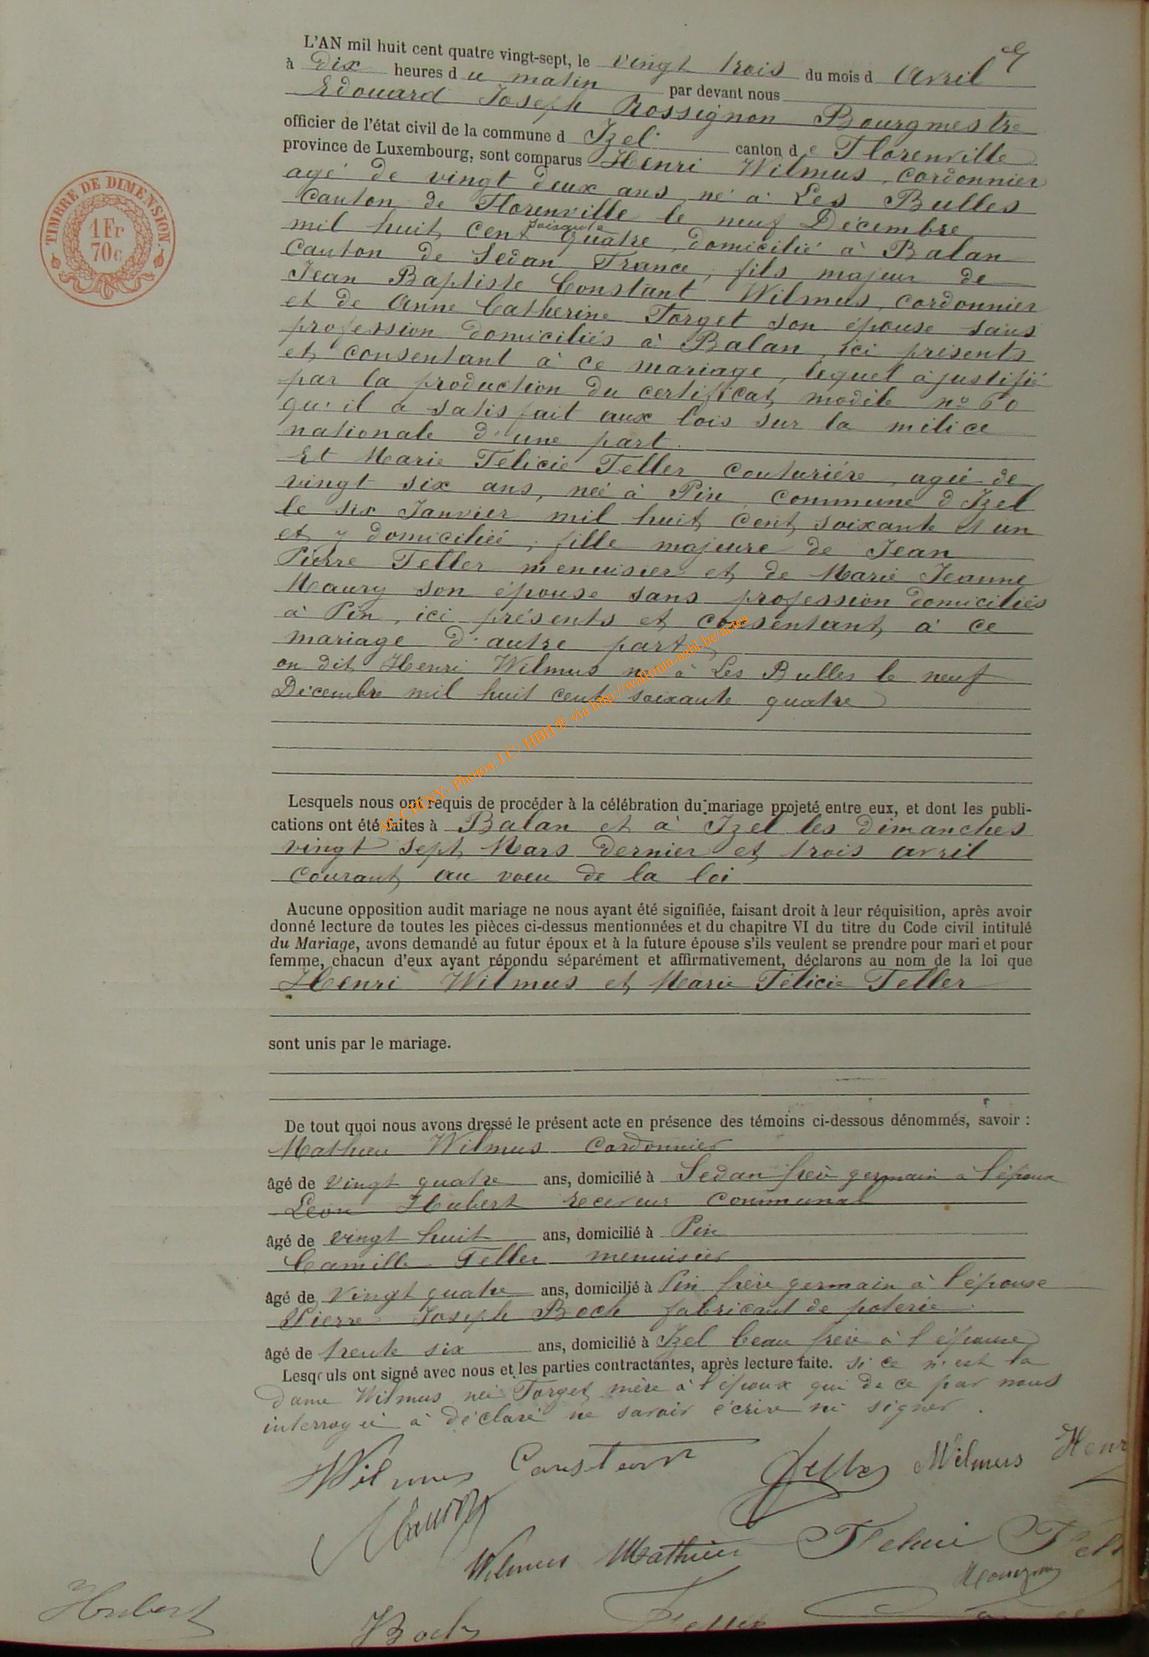 L'AN mil huit cent quatre vingt-sept, le vingt trois du mois d avril
à dix heures du matin par devant nous
Edouard Joseph Rossignon Bourgmestre
officier de l'état civil de la commune d Izel canton de Florenville
province de Luxembourg, sont comparus Henri Wilmus, cordonnier
agé de vingt deux ans né à Les Bulles
Canton de Florenville le neuf Décembre
soixante
mil huit cent quatre, domicilié à Balan
Canton de Sedan France, fils majeur de
Jean Baptiste Constant Wilmus, cordonnier
et de Anne Catherine Forget son épouse sans
profession domiciliés à Balan, ici présents
et consentant à ce mariage, lequel a justifié
par la production du certificat, modèle nº 60
qu'il a satisfait aux lois sur la milice
nationale d'une part.
Et Marie Félicie Feller couturière, agée de
vingt six ans, née à Pin commune d Izel
le six Janvier mil huit cent soixante et un
et y domiciliée, fille majeure de Jean
Pierre Feller menuisier et de Marie Jeanne
Maury son épouse sans profession domiciliés
à Pin, ici présents et consentant à ce
mariage d'autre part
on dit Henri Wilmus né à Les Bulles le neuf
Décembre mil huit cent soixante quatre
Lesquels nous ont requis de procéder à la célébration du mariage projeté entre eux, et dont les publi-
cations ont été faites à Balan et à Izel les dimanches
vingt sept Mars dernier et trois avril
courant au voeu de la loi
Aucune opposition audit mariage ne nous ayant été signifiée, faisant droit à leur réquisition, après avoir
donné lecture de toutes les pièces ci-dessus mentionnées et du chapitre VI du titre du Code civil intitulé
du Mariage, avons demandé au futur époux et à la future épouse s'ils veulent se prendre pour mari et pour
femme, chacun d'eux ayant répondu séparément et affirmativement, déclarons au nom de la loi que
Henri Wilmus et Marie Félicie Feller
sont unis par le mariage.
De tout quoi nous avons dressé le présent acte en présence des témoins ci-dessous dénommés, savoir :
Mathieu Wilmus cordonnier
âgé de vingt quatre ans, domicilié à Sedan frère germain à l'époux
Léon Hubert receveur communal
âgé de vingt huit ans, domicilié à Pin
Camille Feller menuisier
âgé de vingt quatre ans, domicilié à Pin frère germain à l'épouse
Pierre Joseph Boch fabricant de poterie
âgé de trente six ans, domicilié à Izel beau frère à l'épouse
Lesquels ont signé avec nous et les parties contractantes, après lecture faite. si ce n'est la
Dame Wilmus née Forget mère à l'époux qui de ce par nous
interrogée a déclaré ne savoir écrire ni signer.
Wilmus Constant Feller Wilmus Henri
Maury
Wilmus Mathieu Félicie Fell
Hubert Boch Feller
TIMBRE DE DIMENSION
1 Fr
70 c.